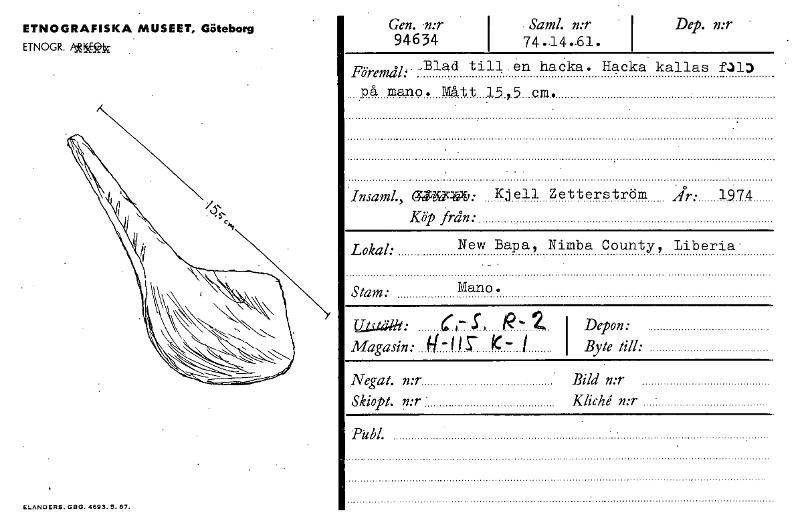 ETNOGRAFISKA MUSEET, Göteborg
ETNOGR. ARKEOL.
15,5 cm
ELANDERS. GBG. 4693. 5. 67.
Gen. n:r
94634
Saml. n:r
74.14.61.
Dep. n:r
Föremål: Blad till en hacka. Hacka kallas
på mano. Mått 15,5 cm.
Insaml., Kjell Zetterström År: 1974
Köp från:
Lokal: New Bapa, Nimba County, Liberia
Stam: Mano.
Utställt: G.-S. R-2 Depon:
Magasin: H-115 K-1 Byte till:
Negat. n:r Bild n:r
Skiopt. n:r Kliché n:r
Publ.